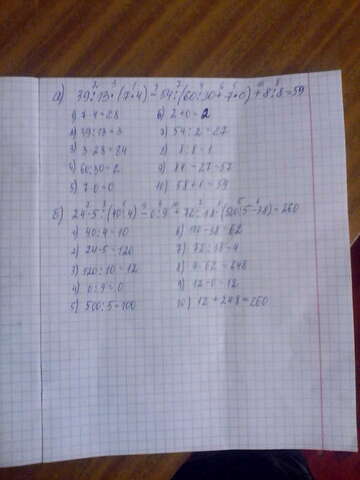 а) 39:13·(7·4)-54:(60:30+7·0)+8:8=59
1) 7·4=28 6) 2+0=2
2) 39:13=3 7) 54:2=27
3) 3·28=84 8) 8:8=1
4) 60:30=2 9) 84-27=57
5) 7·0=0 10) 58+1=59
б) 24·5:(40:4)-0:9+72:18·(500:5-38)=260
1) 40:4=10 6) 100-38=62
2) 24·5=120 7) 72:18=4
3) 120:10=12 8) 4·62=248
4) 0:9=0 9) 12-0=12
5) 500:5=100 10) 12+248=260